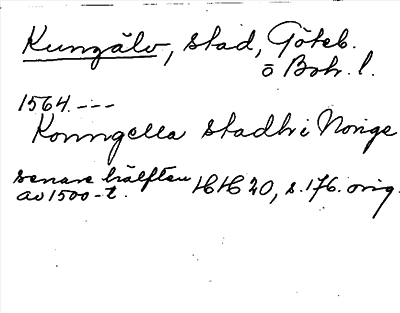 Kungälv, stad, Göteb.
o Boh. l.
1564. ---
Konngella stadh i Norige
senare hälften
av 1500-t. HH 20, s. 176. orig.